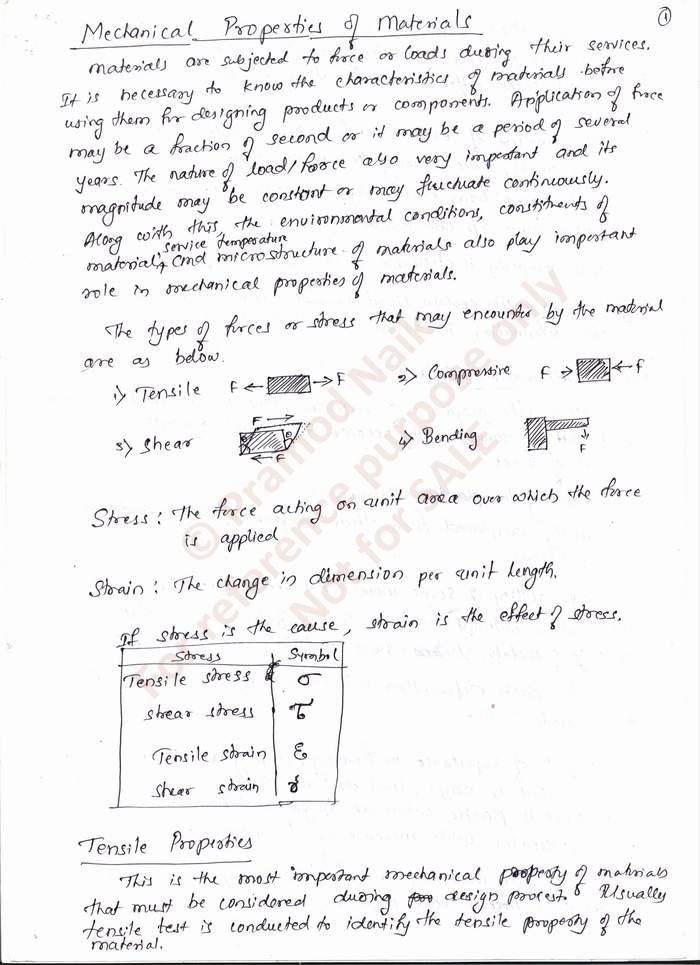 Mechanical Properties of Materials
1
Materials are subjected to force or loads during their services.
It is necessary to know the characteristics of materials before
using them for designing products or components. Application of force
may be a fraction of second or it may be a period of several
years. The nature of load/force also very important and its
magnitude may be constant or may fluctuate continuously.
Along with this, the environmental conditions, constituents of
service temperature
material, and microstructure of materials also play important
role in mechanical properties of materials.
The types of forces or stress that may encounter by the material
are as below.
1) Tensile F F 2) Compressive F F
3) Shear F F 4) Bending F
Stress: The force acting on unit area over which the force
is applied
Strain: The change in dimension per unit length.
If stress is the cause, strain is the effect of stress.
Stress Symbol
Tensile stress σ
Shear stress τ
Tensile strain ε
Shear strain γ
Tensile Properties
This is the most important mechanical property of materials
that must be considered during design process. Usually
tensile test is conducted to identify the tensile property of the
material.
© Pramod Naik
For reference purpose only
Not for SALE